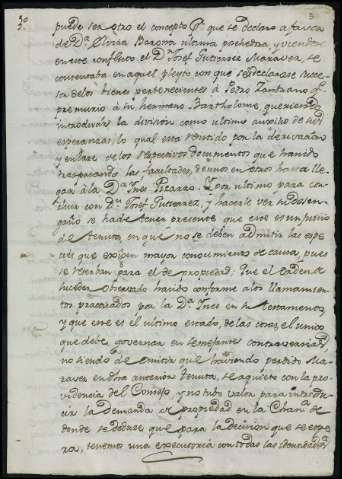 puede ser otro el concepto qe. que se declaro a favor
de Da. Elvira Barona ultima poehedra, y viendose
en este conflicto el Dn. Josef Gutierrez Maraver, se
contentaba en aquel pleyto con que se declarase succesor
de los bienes pertenecientes á Pedro Zambrano qe.
premurió á su hermano Bartholomé, queriendo
introducir la division como ultimo auxilio de sus
esperanzas; lo qual esta vencido por la derivacion
y enlace de los respectivos documentos que han ido
preservando las facultades, de unos en otros hasta lle-
gar á la Da. Ines Picarzo. Por ultimo para con-
cluir con Dn. Josef Gutierrez, y hacerle ver su desen-
gaño se ha de tener presente que este es un juicio
de tenuta, en que no se deben admitir las espe-
cies que exigen mayor conocimiento de causa, pues
se reservan para el de propiedad: Que el orden de
suceder observado ha sido conforme á los llamamien-
tos practicados por la Da. Ines en su testamento,
y que este es el ultimo estado, de las cosas, el unico
que debe governar en semejante controversia; y
no siendo de omitir que haviendo perdido Ma-
raver en otra anterior tenuta, se aquietó con la pro-
videncia del Consejo, y no tubo valor para introdu-
cir la demanda de propiedad en la Chana. de
donde se deduce que para la decision que se espe-
ra, tenemos una executoria con todas las